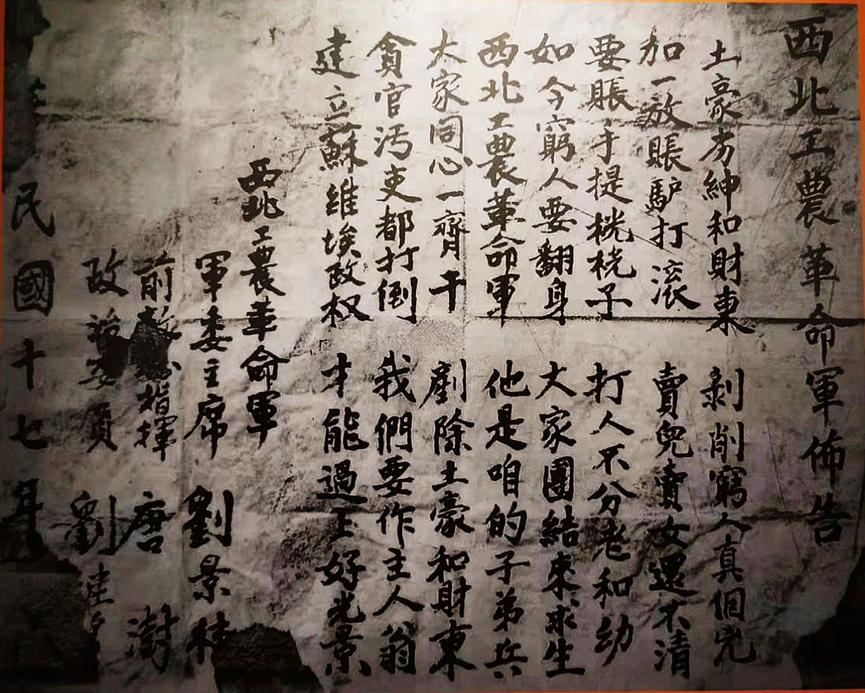 西北工農革命軍佈告
土豪劣紳和財東 剥削窮人真個兇
加一放賬馿打滚 賣兒賣女還不清
要賬手提桄桄子 打人不分老和幼
如今窮人要翻身 大家團結来求生
西北工農革命軍 他是咱的子弟兵
大家同心一齊干 剷除土豪和財東
貪官汚吏都打倒 我們要作主人翁
建立蘇維埃政权 才能過上好光景
西北工農革命軍
軍委主席 劉景桂
前敵總指揮 唐澍
政治委員 劉
民國十七年